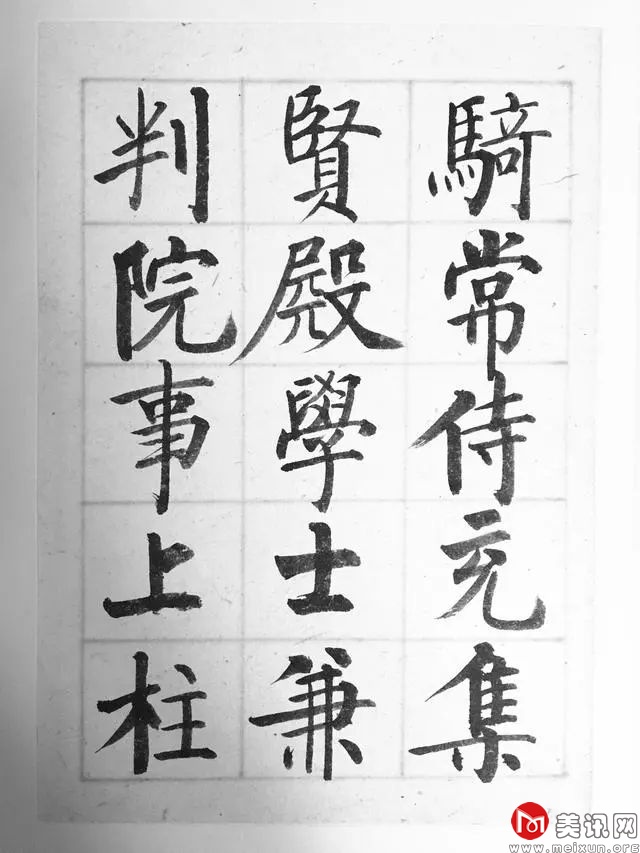 騎常侍充集
賢殿學士兼
判院事上柱
美讯网
www.meixun.org